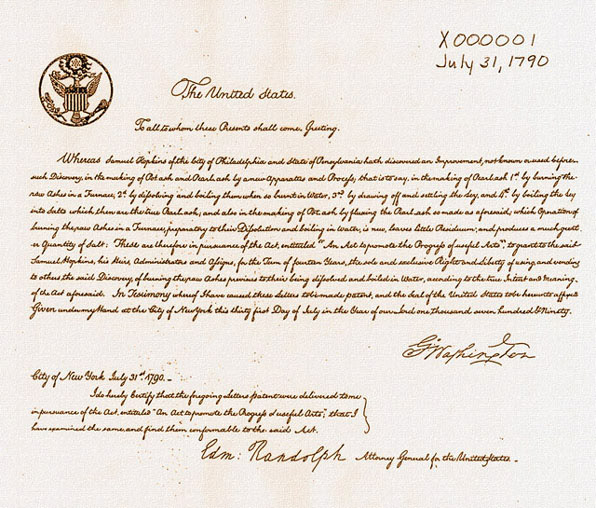 X000001
July 31, 1790
The United States.
To all to whom these Presents shall come, Greeting.
Whereas Samuel Hopkins of the City of Philadelphia and State of Pensylvania hath discovered an Improvement, not known or used before
such Discovery, in the making of Pot ash and Pearl ash by a new Apparatus and Process; that is to say, in the making of Pearl ash 1st. by burning the
raw Ashes in a Furnace, 2d. by dissolving and boiling them when so burnt in Water, 3rd. by drawing off and settling the Ley, and 4th. by boiling the Ley
into Salts which then are the true Pearl ash; and also in the making of Pot ash by fluxing the Pearl ash so made as aforesaid; which Operation of
burning the raw Ashes in a Furnace, preparatory to their Dissolution and boiling in Water, is new, leaves little Residuum; and produces a much great
er Quantity of Salt: These are therefore in pursuance of the Act, entituled "An Act to promote the Progress of useful Arts", to grant to the said
Samuel Hopkins, his Heirs, Administrators and Assigns, for the Term of fourteen Years, the sole and exclusive Right and Liberty of using, and vending
to others the said Discovery, of burning the raw Ashes previous to their being dissolved and boiled in Water, according to the true Intent and Meaning
of the Act aforesaid. In Testimony whereof I have caused these Letters to be made patent, and the Seal of the United States to be hereunto affixed
Given under my Hand at the City of New York this thirty first Day of July in the Year of our Lord one thousand seven hundred & Ninety.
G. Washington
City of New York July 31st. 1790. -
I do hereby Certify that the foregoing Letters patent were delivered to me
in pursuance of the Act, entituled "An Act to promote the Progress of useful Arts"; that I
have examined the same, and find them conformable to the said Act.
Edm: Randolph Attorney General for the United States. -